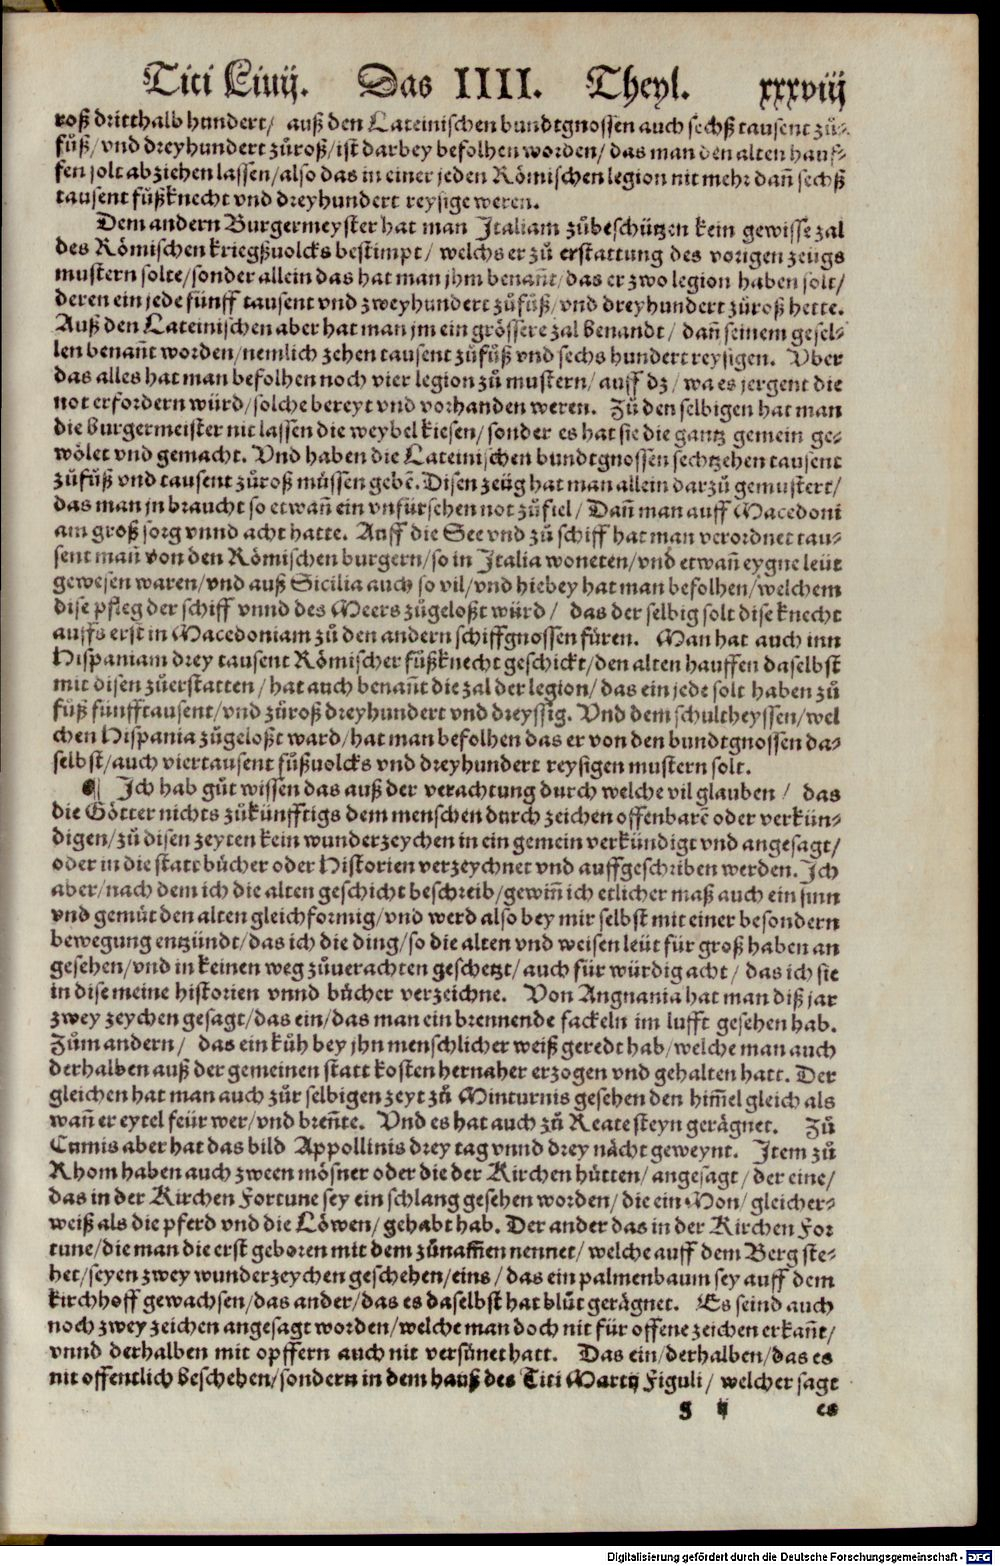 Titi Liuij. Das IIII. Theyl. xxxviij
roß dritthalb hundert/ auß den Lateinischen bundtgnossen auch sechß tausent zů-
fůß/ vnd dreyhundert zůroß/ ist darbey befolhen worden/ das man den alten hauf-
fen solt abziehen lassen/ also das in einer jeden Römischen legion nit mehr dañ sechß
tausent fůßknecht vnd dreyhundert reysige weren.
Dem andern Burgermeyster hat man Italiam zůbeschützen kein gewisse zal
des Römischen kriegßuolcks bestimpt/ welchs er zů erstattung des vorigen zeügs
mustern solte/ sonder allein das hat man jhm benañt/ das er zwo legion haben solt/
deren ein jede fünff tausent vnd zweyhundert zůfůß/ vnd dreyhundert zůroß hette.
Auß den Lateinischen aber hat man jm ein grössere zal benandt/ dañ seinem gesel-
len benañt worden/ nemlich zehen tausent zůfůß vnd sechs hundert reysigen. Vber
das alles hat man befolhen noch vier legion zů mustern/ auff dz/ wa es jergent die
not erfordern würd/ solche bereyt vnd vorhanden weren. Zů den selbigen hat man
die burgermeister nit lassen die weybel kiesen/ sonder es hat sie die gantz gemein ge-
wölet vnd gemacht. Vnd haben die Lateinischen bundtgnossen sechtzehen tausent
zůfůß vnd tausent zůroß müssen gebē. Disen zeüg hat man allein darzů gemustert/
das man jn braucht so etwañ ein vnfürsehen not zůfiel/ Dañ man auff Macedoni
am groß sorg vnnd acht hatte. Auff die See vnd zů schiff hat man verordnet tau-
sent mañ von den Römischen burgern/ so in Italia woneten/ vnd etwañ eygne leüt
gewesen waren/ vnd auß Sicilia auch so vil/ vnd hiebey hat man befolhen/ welchem
dise pfleg der schiff vnnd des Meers zůgeloßt würd/ das der selbig solt dise knecht
auffs erst in Macedoniam zů den andern schiffgnossen füren. Man hat auch inn
Hispaniam drey tausent Römischer fůßknecht geschickt/ den alten hauffen daselbst
mit disen zůerstatten/ hat auch benañt die zal der legion/ das ein jede solt haben zů
fůß fünfftausent/ vnd zůroß dreyhundert vnd dreyssig. Vnd dem schultheyssen/ wel
chen Hispania zůgeloßt ward/ hat man befolhen das er von den bundtgnossen da-
selbst/ auch viertausent fůßuolcks vnd dreyhundert reysigen mustern solt.
¶ Ich hab gůt wissen das auß der verachtung durch welche vil glauben/ das
die Götter nichts zůkünfftigs dem menschen durch zeichen offenbarē oder verkün-
digen/ zů disen zeyten kein wunderzeychen in ein gemein verkündigt vnd angesagt/
oder in die statt bücher oder Historien verzeychnet vnd auffgeschriben werden. Ich
aber/ nach dem ich die alten geschicht beschreib/ gewiñ ich etlicher maß auch ein sinn
vnd gemüt den alten gleichformig/ vnd werd also bey mir selbst mit einer besondern
bewegung entzündt/ das ich die ding/ so die alten vnd weisen leüt für groß haben an
gesehen/ vnd in keinen weg zůuerachten geschetzt/ auch für würdig acht/ das ich sie
in dise meine historien vnnd bücher verzeichne. Von Angnania hat man diß jar
zwey zeychen gesagt/ das ein/ das man ein brennende fackeln im lufft gesehen hab.
Zům andern/ das ein kůh bey jhn menschlicher weiß geredt hab/ welche man auch
derhalben auß der gemeinen statt kosten hernaher erzogen vnd gehalten hatt. Der
gleichen hat man auch zůr selbigen zeyt zů Minturnis gesehen den him̄el gleich als
wañ er eytel feür wer/ vnd breñte. Vnd es hat auch zů Reate steyn gerägnet. Zů
Cumis aber hat das bild Appollinis drey tag vnnd drey nächt geweynt. Item zů
Rhom haben auch zween mösner oder die der Kirchen hütten/ angesagt/ der eine/
das in der Kirchen Fortune sey ein schlang gesehen worden/ die ein Mon/ gleicher-
weiß als die pferd vnd die Löwen/ gehabt hab. Der ander das in der Kirchen For
tune/ die man die erst geboren mit dem zůnam̄en nennet/ welche auff dem Berg ste-
het/ seyen zwey wunderzeychen geschehen/ eins/ das ein palmenbaum sey auff dem
kirchhoff gewachsen/ das ander/ das es daselbst hat blůt gerägnet. Es seind auch
noch zwey zeichen angesagt worden/ welche man doch nit für offene zeichen erkañt/
vnnd derhalben mit opffern auch nit versünet hatt. Das ein/ derhalben/ das es
nit offentlich beschehen/ sondern in dem hauß des Titi Martij Figuli/ welcher sagt
g ij es
Digitalisierung gefördert durch die Deutsche Forschungsgemeinschaft - DFG